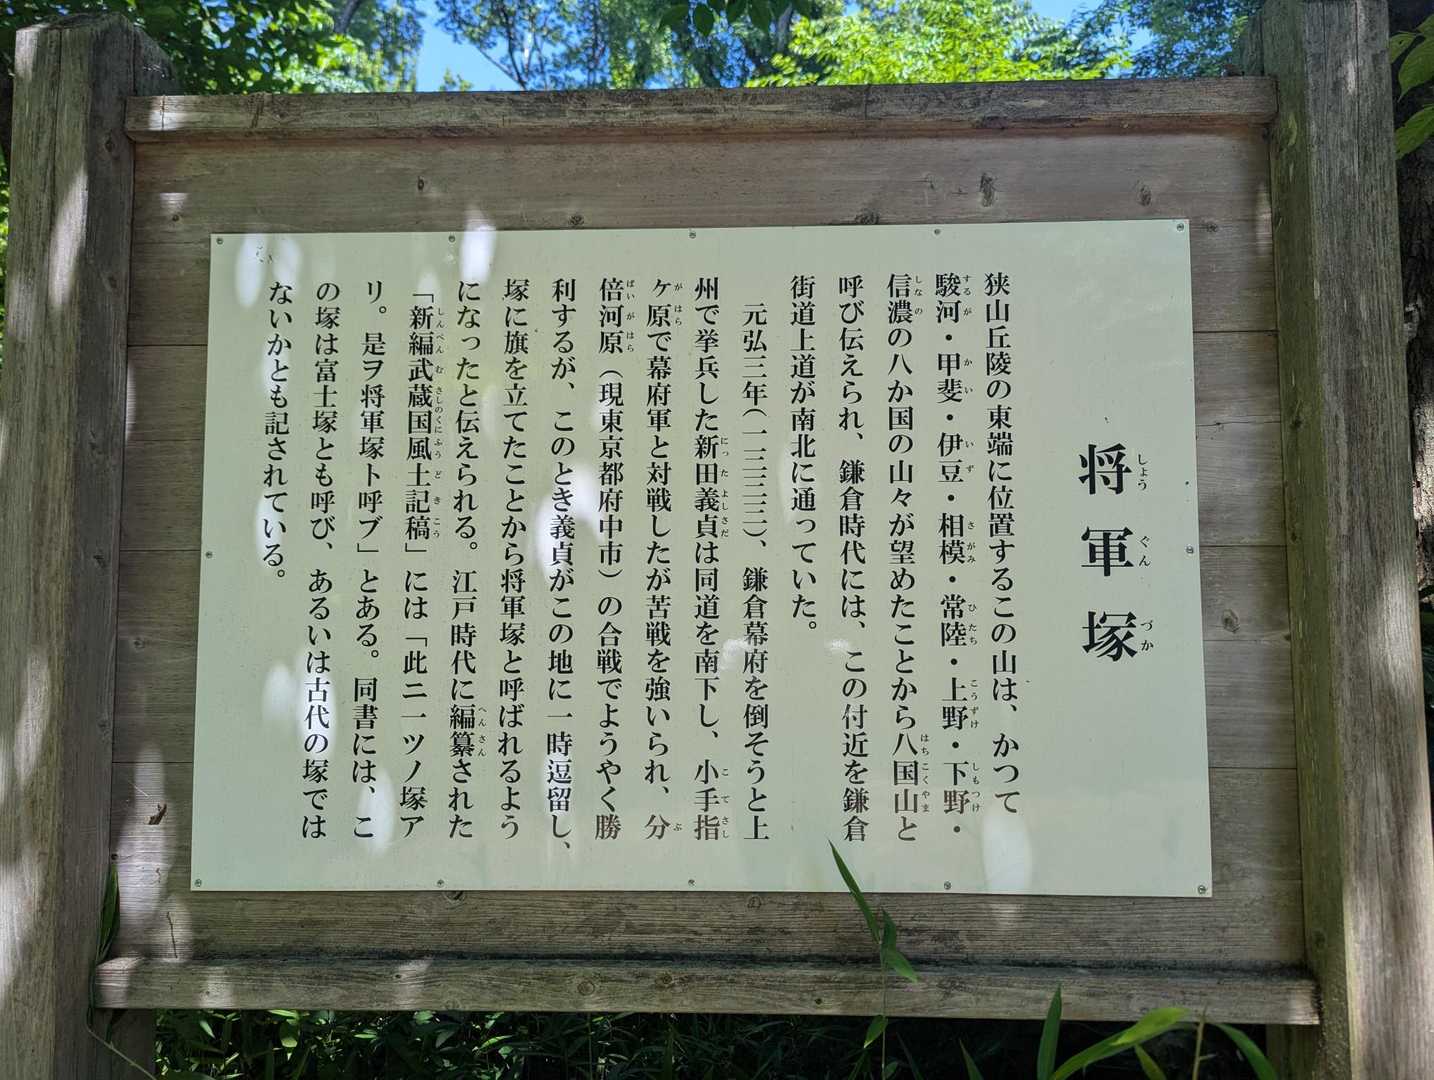 将軍塚
狭山丘陵の東端に位置するこの山は、かつて
駿河・甲斐・伊豆・相模・常陸・上野・下野・
信濃の八か国の山々が望めたことから八国山と
呼び伝えられ、鎌倉時代には、この付近を鎌倉
街道上道が南北に通っていた。
元弘三年(一三三三)、鎌倉幕府を倒そうと上
州で挙兵した新田義貞は同道を南下し、小手指
ケ原で幕府軍と対戦したが苦戦を強いられ、分
倍河原(現東京都府中市)の合戦でようやく勝
利するが、このとき義貞がこの地に一時逗留し、
塚に旗を立てたことから将軍塚と呼ばれるよう
になったと伝えられる。江戸時代に編纂された
「新編武蔵国風土記稿」には「此ニ一ツノ塚ア
リ。是ヲ将軍塚ト呼ブ」とある。同書には、こ
の塚は富士塚とも呼び、あるいは古代の塚では
ないかとも記されている。